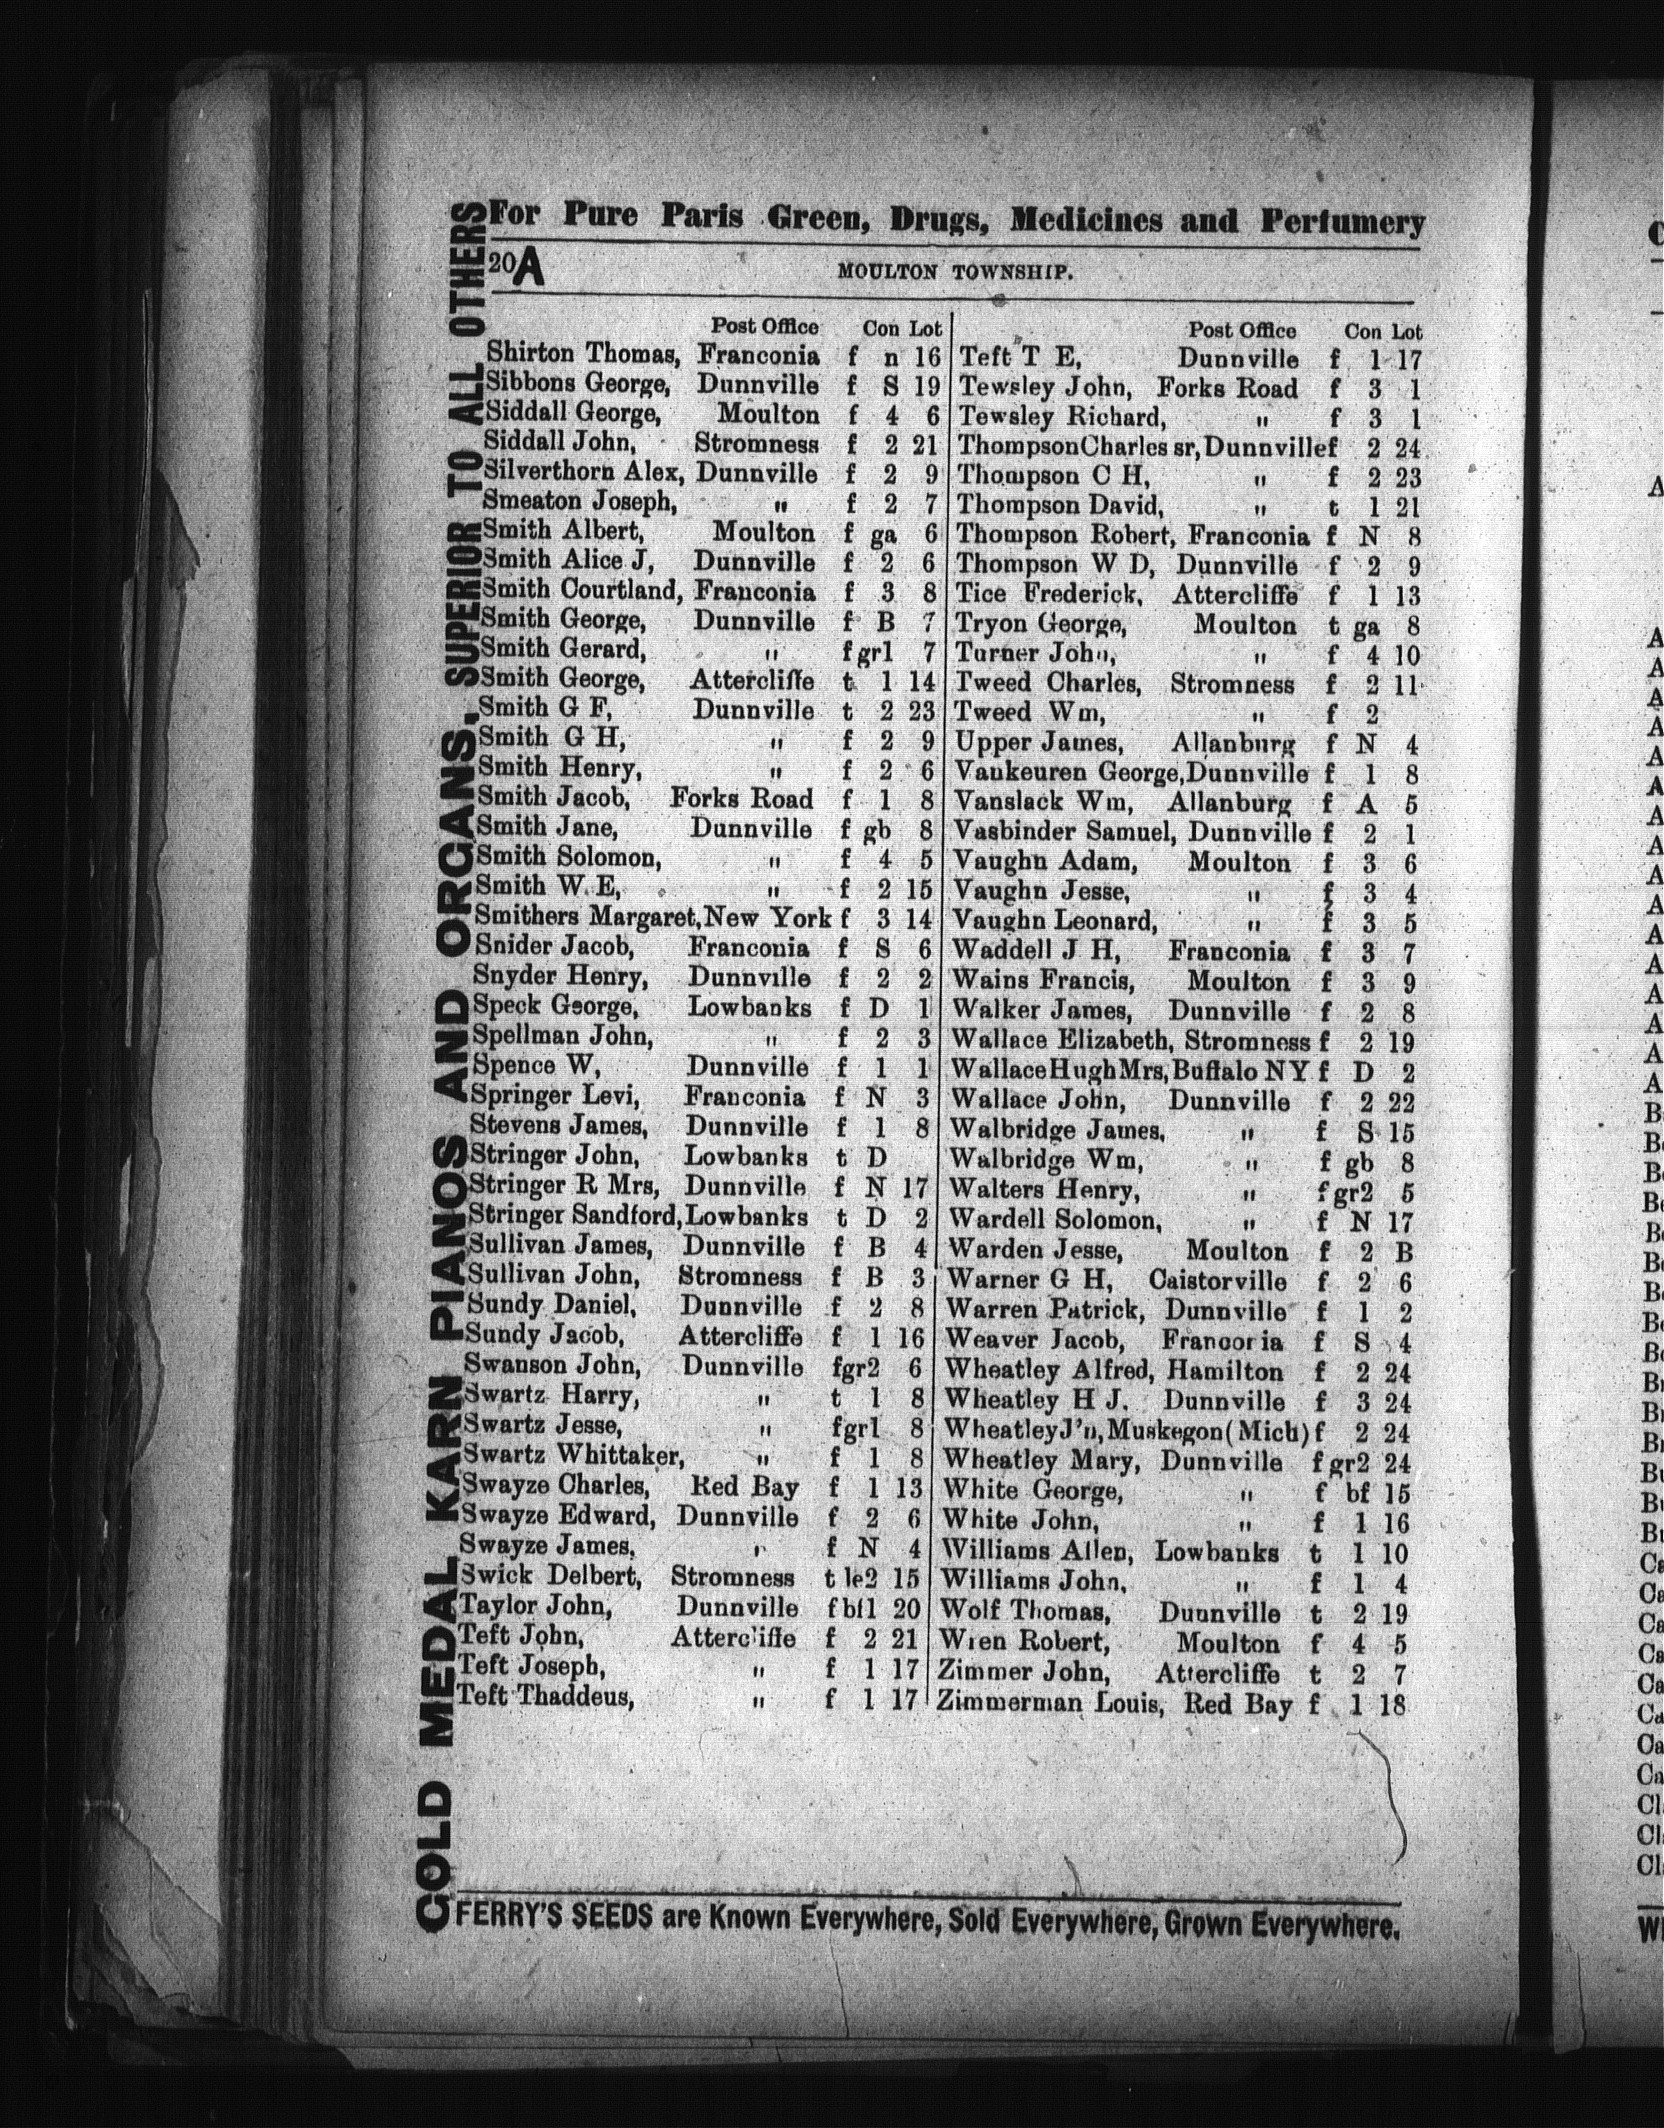 For Pure Paris Green, Drugs, Medicines and Perfumery
20A
MOULTON TOWNSHIP.
GOLD MEDAL KARN PIANOS AND ORGANS. SUPERIOR TO ALL OTHERS
Post Office Con Lot
Shirton Thomas, Franconia f n 16
Sibbons George, Dunnville f S 19
Siddall George, Moulton f 4 6
Siddall John, Stromness f 2 21
Silverthorn Alex, Dunnville f 2 9
Smeaton Joseph, " f 2 7
Smith Albert, Moulton f ga 6
Smith Alice J, Dunnville f 2 6
Smith Courtland, Franconia f 3 8
Smith George, Dunnville f B 7
Smith Gerard, " f gr1 7
Smith George, Attercliffe t 1 14
Smith G F, Dunnville t 2 23
Smith G H, " f 2 9
Smith Henry, " f 2 6
Smith Jacob, Forks Road f 1 8
Smith Jane, Dunnville f gb 8
Smith Solomon, " f 4 5
Smith W E, " f 2 15
Smithers Margaret, New York f 3 14
Snider Jacob, Franconia f S 6
Snyder Henry, Dunnville f 2 2
Speck George, Lowbanks f D 1
Spellman John, " f 2 3
Spence W, Dunnville f 1 1
Springer Levi, Franconia f N 3
Stevens James, Dunnville f 1 8
Stringer John, Lowbanks t D
Stringer R Mrs, Dunnville f N 17
Stringer Sandford, Lowbanks t D 2
Sullivan James, Dunnville f B 4
Sullivan John, Stromness f B 3
Sundy Daniel, Dunnville f 2 8
Sundy Jacob, Attercliffe f 1 16
Swanson John, Dunnville fgr2 6
Swartz Harry, " t 1 8
Swartz Jesse, " fgr1 8
Swartz Whittaker, " f 1 8
Swayze Charles, Red Bay f 1 13
Swayze Edward, Dunnville f 2 6
Swayze James, " f N 4
Swick Delbert, Stromness t le2 15
Taylor John, Dunnville f bf1 20
Teft John, Attercliffe f 2 21
Teft Joseph, " f 1 17
Teft Thaddeus, " f 1 17
Post Office Con Lot
Teft T E, Dunnville f 1 17
Tewsley John, Forks Road f 3 1
Tewsley Richard, " f 3 1
Thompson Charles sr, Dunnville f 2 24
Thompson C H, " f 2 23
Thompson David, " t 1 21
Thompson Robert, Franconia f N 8
Thompson W D, Dunnville f 2 9
Tice Frederick, Attercliffe f 1 13
Tryon George, Moulton t ga 8
Turner John, " f 4 10
Tweed Charles, Stromness f 2 11
Tweed Wm, " f 2
Upper James, Allanburg f N 4
Vankeuren George, Dunnville f 1 8
Vanslack Wm, Allanburg f A 5
Vasbinder Samuel, Dunnville f 2 1
Vaughn Adam, Moulton f 3 6
Vaughn Jesse, " f 3 4
Vaughn Leonard, " f 3 5
Waddell J H, Franconia f 3 7
Wains Francis, Moulton f 3 9
Walker James, Dunnville f 2 8
Wallace Elizabeth, Stromness f 2 19
Wallace Hugh Mrs, Buffalo NY f D 2
Wallace John, Dunnville f 2 22
Walbridge James, " f S 15
Walbridge Wm, " f gb 8
Walters Henry, " f gr2 5
Wardell Solomon, " f N 17
Warden Jesse, Moulton f 2 B
Warner G H, Caistorville f 2 6
Warren Patrick, Dunnville f 1 2
Weaver Jacob, Franconia f S 4
Wheatley Alfred, Hamilton f 2 24
Wheatley H J. Dunnville f 3 24
Wheatley J'n, Muskegon (Mich) f 2 24
Wheatley Mary, Dunnville f gr2 24
White George, " f bf 15
White John, " f 1 16
Williams Allen, Lowbanks t 1 10
Williams John, " f 1 4
Wolf Thomas, Dunnville t 2 19
Wren Robert, Moulton f 4 5
Zimmer John, Attercliffe t 2 7
Zimmerman Louis, Red Bay f 1 18
FERRY'S SEEDS are Known Everywhere, Sold Everywhere, Grown Everywhere.